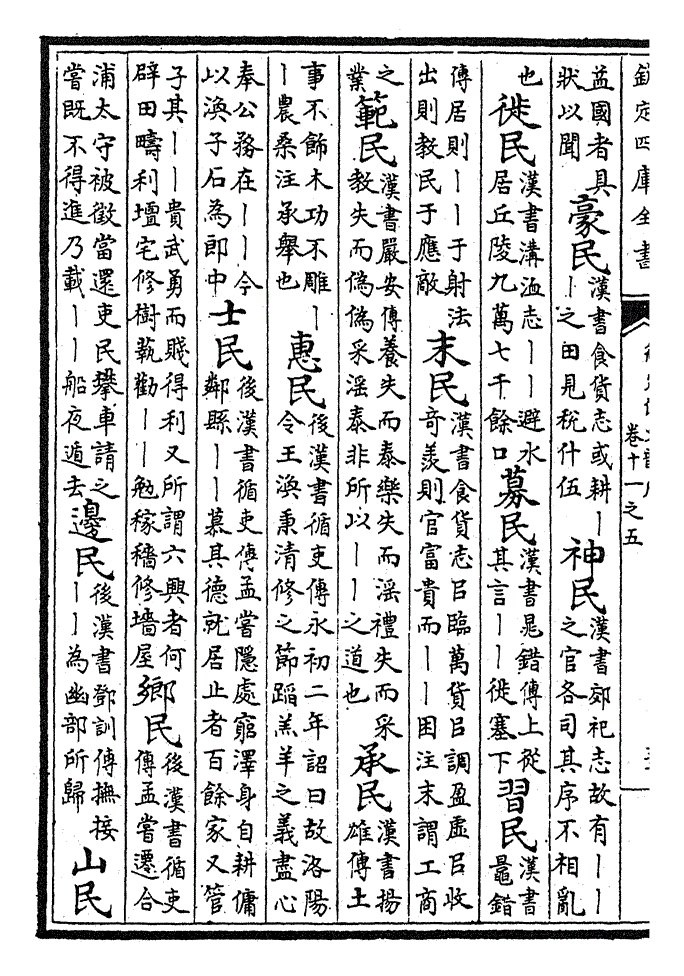 欽定四庫全書
卷十一之五
益國者具狀以聞豪民漢書食貨志或耕丨丨之田見稅什伍神民漢書郊祀志故有丨丨之官各司其序不相亂
也徙民漢書溝洫志丨丨避水居丘陵九萬七千餘口募民漢書晁錯傳上從其言丨丨徙塞下習民漢書鼂錯
傳居則丨丨于射法出則教民于應敵末民漢書食貨志㠯臨萬貨㠯調盈虛㠯收奇羨則官富貴而丨丨困注末謂工商
之業範民漢書嚴安傳養失而泰樂失而淫禮失而采教失而偽偽采淫泰非所以丨丨之道也承民漢書揚雄傳土
事不飾木功不雕丨丨農桑注承舉也惠民後漢書循吏傳永初二年詔曰故洛陽令王渙秉清修之節蹈羔羊之義盡心
奉公務在丨丨今以渙子石為郎中士民後漢書循吏傳孟嘗隱處窮澤身自耕傭鄰縣丨丨慕其德就居止者百餘家又管
子其丨丨貴武勇而賤得利又所謂六興者何辟田疇利壇宅修樹蓺勸丨丨勉稼穡修墻屋鄉民後漢書循吏傳孟嘗遷合
浦太守被徵當還吏民攀車請之嘗既不得進乃載丨丨船夜遁去邊民後漢書鄧訓傳撫接丨丨為幽部所歸山民